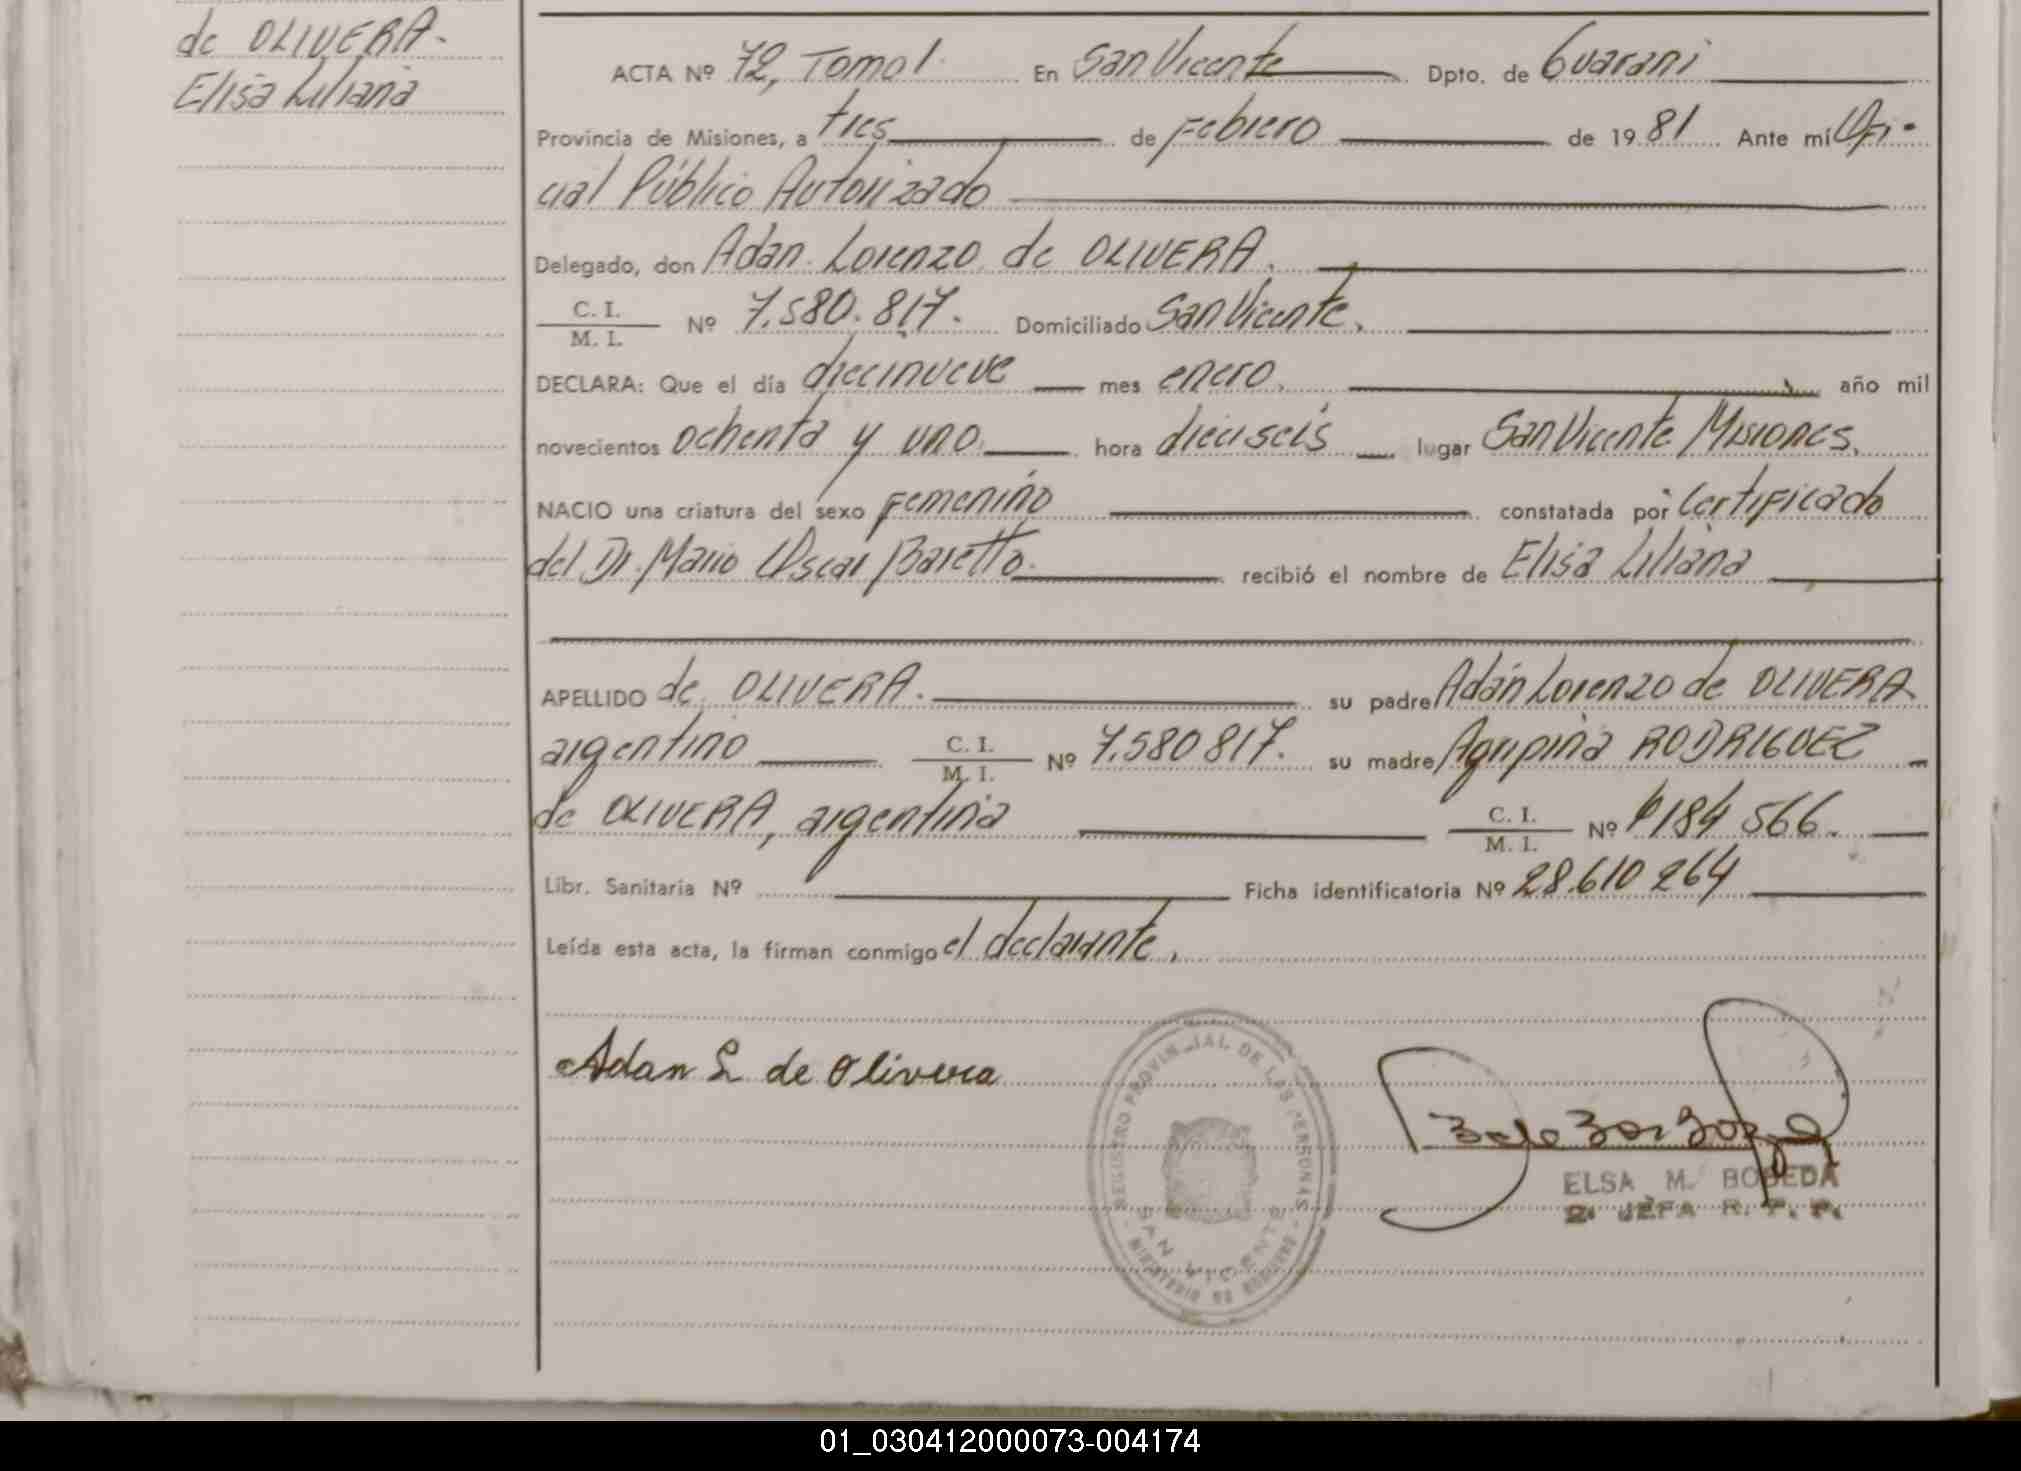 de OLIVERA.
Elisa Liliana
ACTA Nº 72, Tomo I. En San Vicente Dpto. de Guarani
Provincia de Misiones, a tres de Febrero de 1981 Ante mí Ofi-
cial Público Autorizado
Delegado, don Adan Lorenzo de OLIVERA.
C. I.
M. I. Nº 7.580.817. Domiciliado San Vicente,
DECLARA: Que el día diecinueve mes enero, año mil
novecientos ochenta y uno. hora dieciseis lugar San Vicente Misiones,
NACIO una criatura del sexo Femenino constatada por Certificado
del Dr. Mario Oscar Baretto. recibió el nombre de Elisa Liliana
APELLIDO de OLIVERA. su padre Adán Lorenzo de OLIVERA
argentino C. I. M. I. Nº 7.580817. su madre Agripina RODRIGUEZ
de OLIVERA, argentina C. I. M. I. Nº 184 566.
Libr. Sanitaria Nº Ficha identificatoria Nº 28.610 264
Leída esta acta, la firman conmigo el declarante,
Adan L de Olivera
REGISTRO PROVINCIAL DE LAS PERSONAS
SAN VICENTE
MINISTERIO DE GOBIERNO
ELSA M. BOBEDA
2º JEFA R. P. P.
01_030412000073-004174